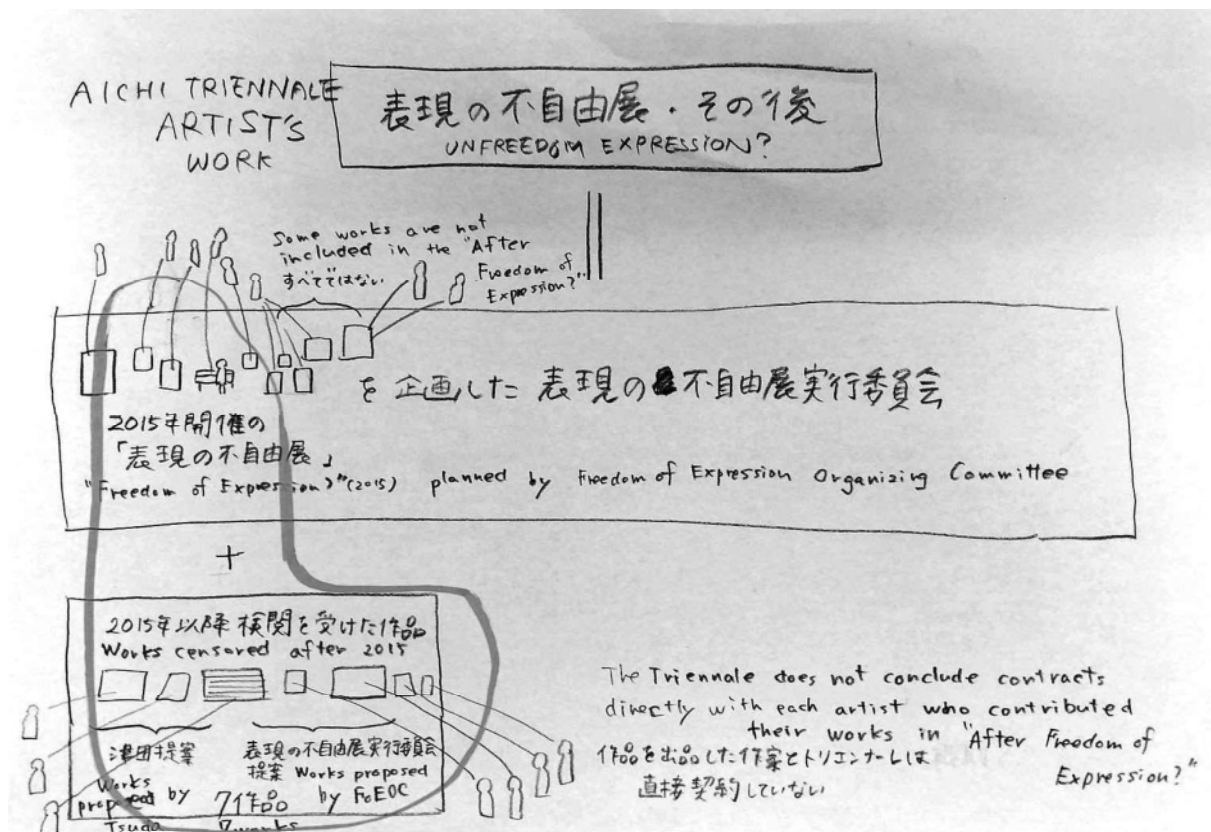 AICHI TRIENNALE
ARTIST'S
WORK
表現の不自由展・その後
UNFREEDOM EXPRESSION?
Some works are not
included in the "After
Freedom of
Expression?"
すべてではない
を企画した 表現の不自由展実行委員会
2015年開催の
「表現の不自由展」
"Freedom of Expression?"(2015) planned by Freedom of Expression Organizing Committee
+
2015年以降 検閲を受けた作品
Works censored after 2015
津田提案
Works
proposed by
Tsuda
表現の不自由展実行委員会
提案 Works proposed
by FoEOC
7作品
7works
The Triennale does not conclude contracts
directly with each artist who contributed
their works in "After Freedom of
Expression?"
作品を出品した作家とトリエンナーレは
直接契約していない